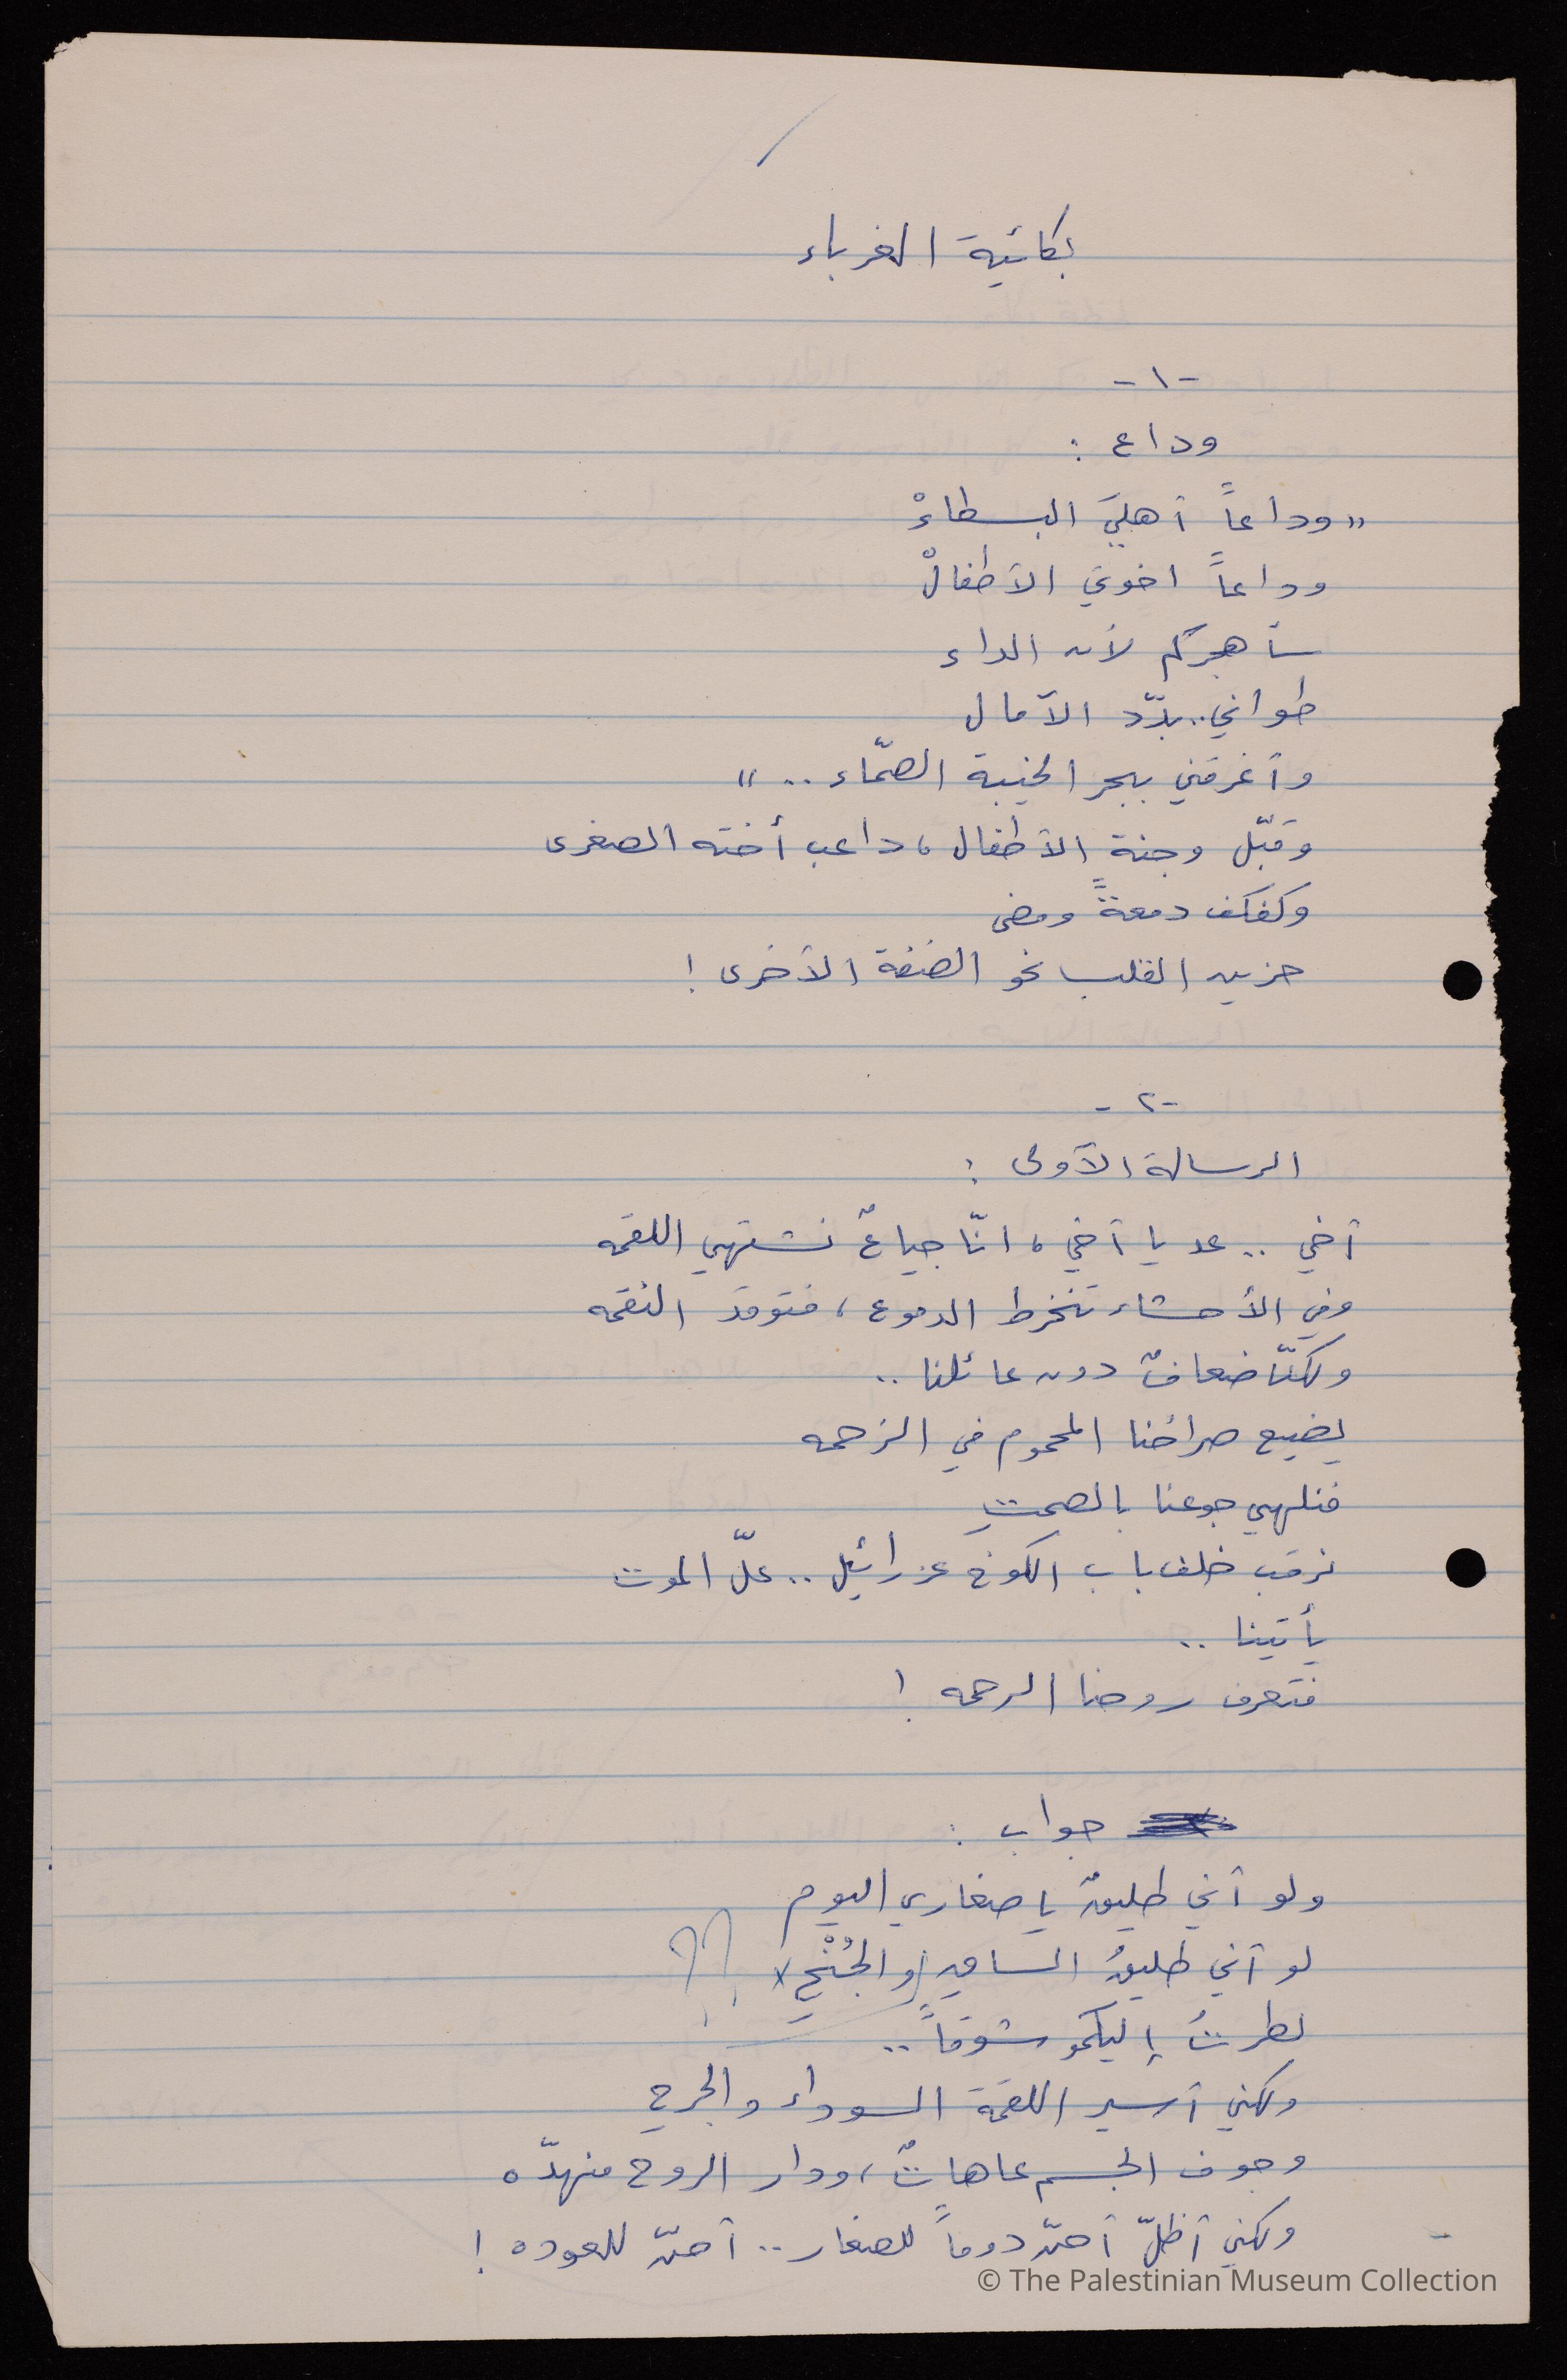 بكائية الغرباء
-١-
وداع :
"وداعاً أهليَ البسطاءْ
وداعاً اخوتي الأطفالْ
سأهجركم لأن الداء
طواني.. بدّد الآمال
وأغرقني ببحر الخيبة الصمّاء .. "
وقبّل وجنة الأطفال، داعب أخته الصغرى
وكفكف دمعةً ومضى
حزين القلب نحو الضفة الأخرى !
-٢-
الرسالة الأولى :
أخي .. عد يا أخي، انّا جياعٌ نشتهي اللقمه
وفي الأحشاء تنخرط الدموع، فتوقد النقمه
ولكنّا ضعافٌ دون عائلنا ..
يضيع صراخنا المحموم في الزحمه
فنلهي جوعنا بالصمتِ
نرقب خلف باب الكوخ عزرائيل .. علّ الموت
يأتينا ..
فتعرف روحنا الرحمه !
جواب :
ولو أني طليقٌ يا صغاري اليوم
لو أني طليقُ الساقِ والجُنْحِ x ؟؟
لطرتُ إليكمو شوقاً ..
ولكني أسير اللقمة السوداء والجرح
وجوف الجسم عاهاتٌ، ودار الروح منهدّه
ولكني أظلّ أحنّ دوماً للصغار .. أحنّ للعوده !
© The Palestinian Museum Collection